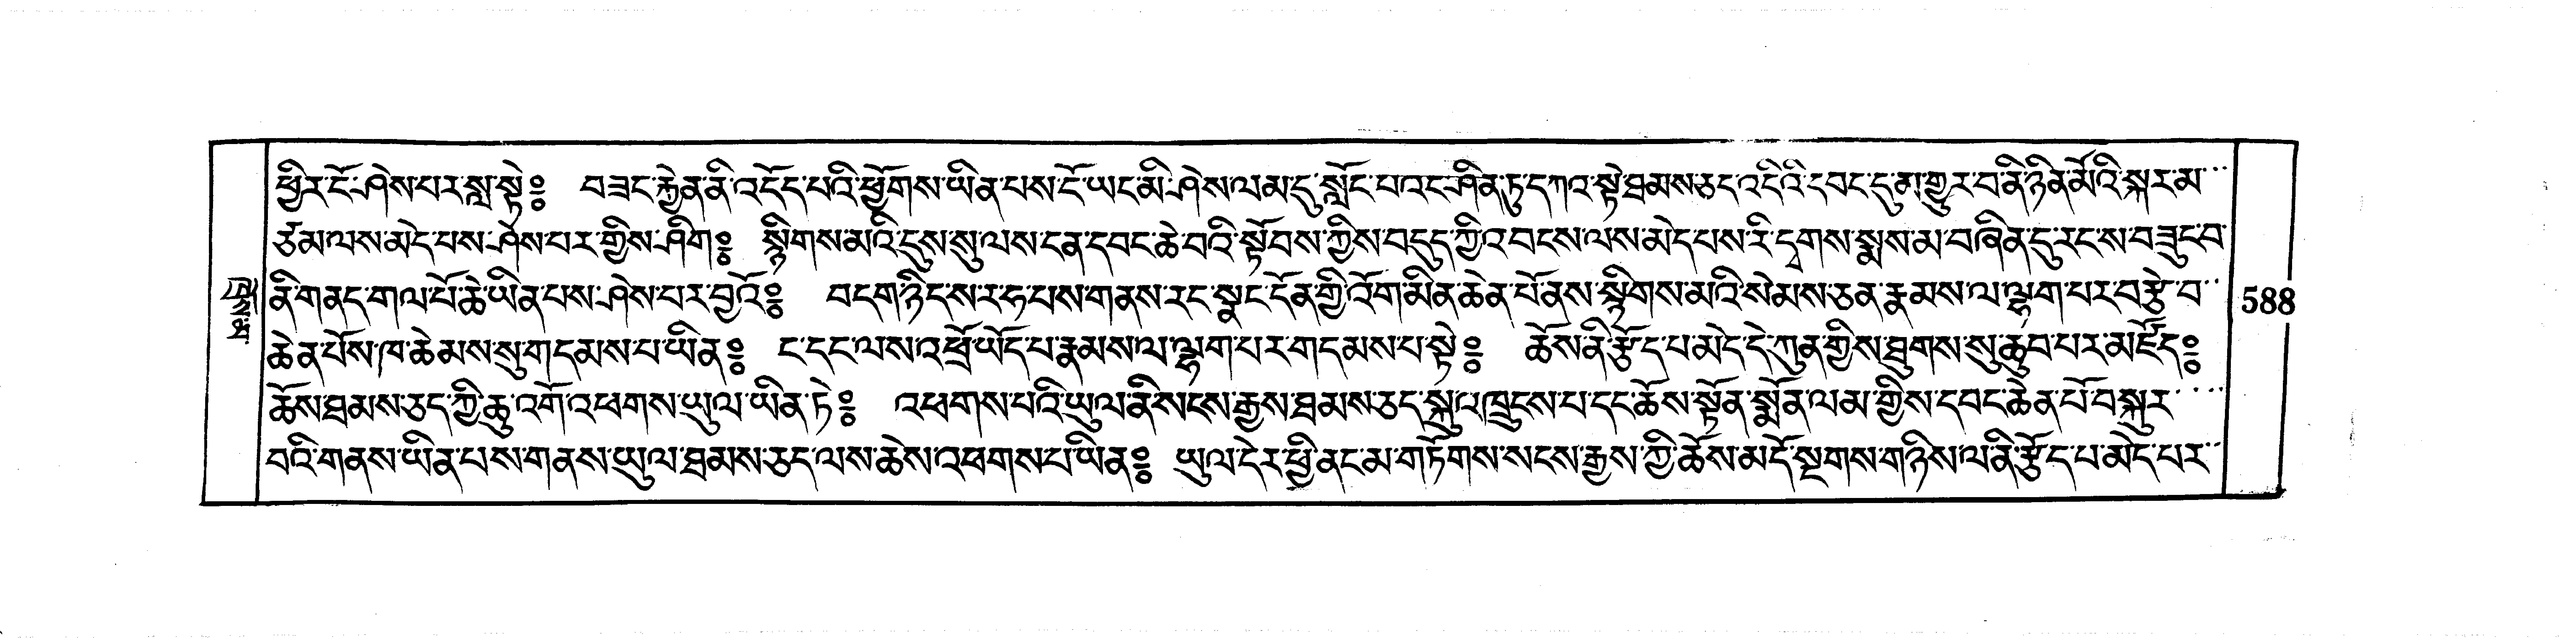 ཕྱིར་ངོ་ཤེས་པར་སླ་སྟེ༔ བཟང་རྐྱེན་ནི་འདོད་པའི་ཕྱོགས་ཡིན་པས་ངོ་ཡང་མི་ཤེས་ལམ་དུ་སློང་བའང་ཤིན་ཏུ་དཀའ་སྟེ་ཐམས་ཅད་འདིའི་དབང་དུ་མ་གྱུར་བ་ནི་ཉིན་མོའི་སྐར་མ
ཙམ་ལས་མེད་པས་ཤེས་པར་གྱིས་ཤིག༔ སྙིགས་མའི་དུས་སུ་ལས་ངན་དབང་ཆེ་བའི་སྟོབས་ཀྱིས་བདུད་ཀྱི་འབངས་ལས་མེད་པས་རི་དྭགས་སྨྲས་མ་བཞིན་དུ་རང་ས་བཟུང་བ་
ནི་གནད་གལ་པོ་ཆེ་ཡིན་པས་ཤེས་པར་བྱའོ༔ བདག་ཉིད་ས་ར་ཧ་པས་གནས་རང་སྣང་དོན་གྱི་འོག་མིན་ཆེན་པོ་ནས་སྙིགས་མའི་སེམས་ཅན་རྣམས་ལ་ལྷག་པར་བརྩེ་བ
ཆེན་པོས་ཁ་ཆེམས་སུ་གདམས་པ་ཡིན༔ ང་དང་ལས་འཕྲོ་ཡོད་པ་རྣམས་ལ་ལྷག་པར་གདམས་པ་སྟེ༔ ཆོས་ནི་རྩོད་པ་མེད་དེ་ཀུན་གྱིས་ཐུགས་སུ་ཆུབ་པར་མཛོད༔
ཆོས་ཐམས་ཅད་ཀྱི་ཆུ་འགོ་འཕགས་ཡུལ་ཡིན་ཏེ༔ འཕགས་པའི་ཡུལ་ནི་སངས་རྒྱས་ཐམས་ཅད་སྐུ་འཁྲུངས་པ་དང་ཆོས་སྟོན་སྨོན་ལམ་གྱིས་དབང་ཆེན་པོ་བསྐུར
བའི་གནས་ཡིན་པས་གནས་ཡུལ་ཐམས་ཅད་ལས་ཆེས་འཕགས་པ་ཡིན༔ ཡུལ་དེར་ཕྱི་ནང་མ་གཏོགས་སངས་རྒྱས་ཀྱི་ཆོས་མདོ་སྔགས་གཉིས་ལ་ནི་རྩོད་པ་མེད་པར
588